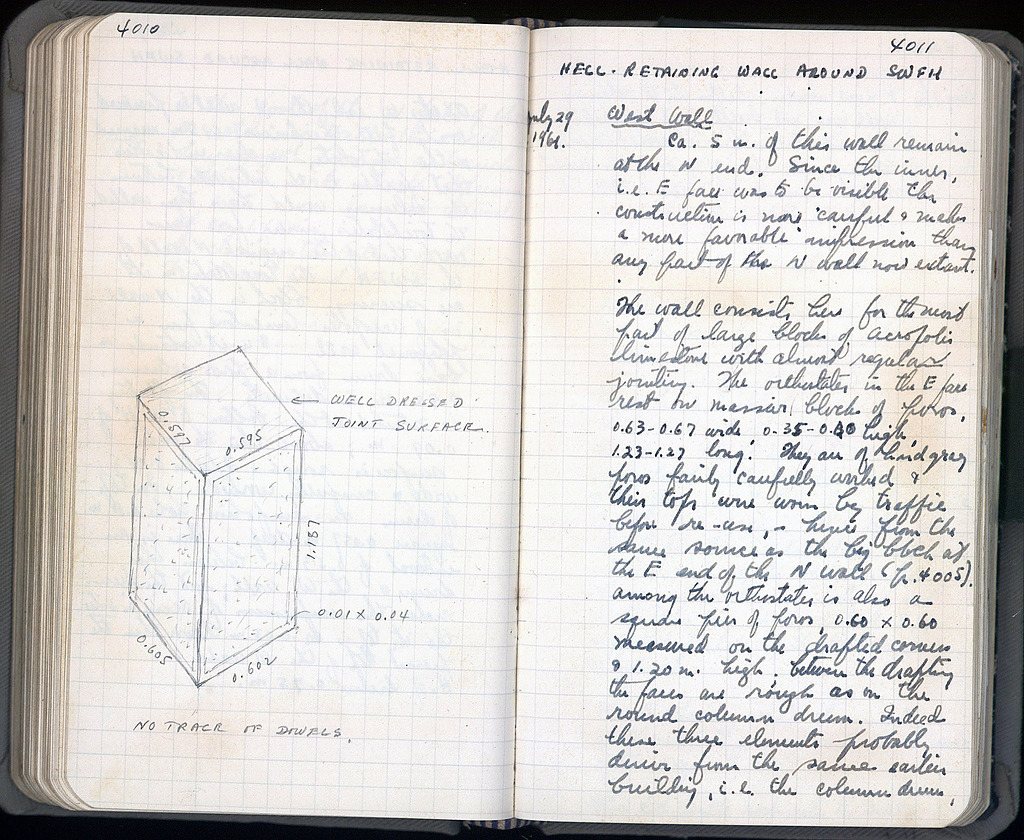 4010
0.597
0.595
← WELL DRESSED
JOINT SURFACE.
1.137
0.01 X 0.04
0.605
0.602
NO TRACE OF DOWELS.
4011
HELL. RETAINING WALL AROUND SWFH
July 29
1961.
West Wall
Ca. 5 m. of this wall remain
at the N end. Since the inner,
i.e. E face was to be visible the
construction is more careful & makes
a more favorable impression than
any part of the N wall now extant.
The wall consists here for the most
part of large blocks of Acropolis
limestone with almost regular
jointing. The orthostates in the E face
rest on massive blocks of poros,
0.63-0.67 wide, 0.35-0.40 high,
1.23-1.27 long. They are of hard gray
poros fairly carefully worked &
their tops were worn by traffic
before re-use, hence from the
same source as the big block at
the E end of the N wall (p. 4005).
Among the orthostates is also a
square pier of poros, 0.60 x 0.60
measured on the drafted corners
& 1.20 m. high. Between the drafting
the faces are rough as on the
round column drum. Indeed
these three elements probably
derive from the same earlier
building, i.e. the column drum,